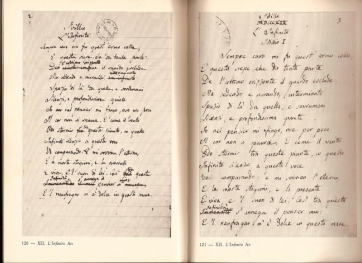 2
Idillio
L'Infinito
Sempre caro mi fu quest'ermo colle,
E questa siepe, che da tanta parte
il guardo esclude.
Ma sedendo e mirando
Spazio di là da quella, e sovrumani
Silenzi, e profondissima quiete
Io nel pensier mi fingo, ove per poco
Il cor non si spaura. E come il vento
Odo stormir tra queste piante, io quello
Infinito silenzio a questa voce
Vo comparando: e mi sovvien l'eterno,
E le morte stagioni, e la presente
E viva, e 'l suon di lei. Così tra questa
il pensier mio:
E 'l naufragar m'è dolce in questo mare.
120 — XII. L'Infinito An
3
L'Infinito
Idillio I
Sempre caro mi fu quest'ermo colle,
E questa siepe che da tanta parte
De l'ultimo orizzonte il guardo esclude.
Ma sedendo e mirando, interminato
Spazio di là da quella, e sovrumani
Silenzi, e profondissima quiete
Io nel pensier mi fingo, ove per poco
Il cor non si spaura. E come il vento
Odo stormir tra queste piante, io quello
Infinito silenzio a questa voce
Vo comparando: e mi sovvien l'eterno,
E le morte stagioni, e la presente
E viva, e 'l suon di lei. Così tra questa
s'annega il pensier mio:
E 'l naufragar m'è dolce in questo mare.
121 — XII. L'Infinito Av